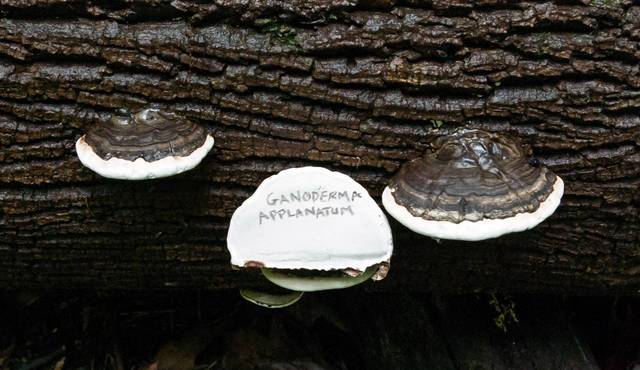 GANODERMA
APPLANATUM